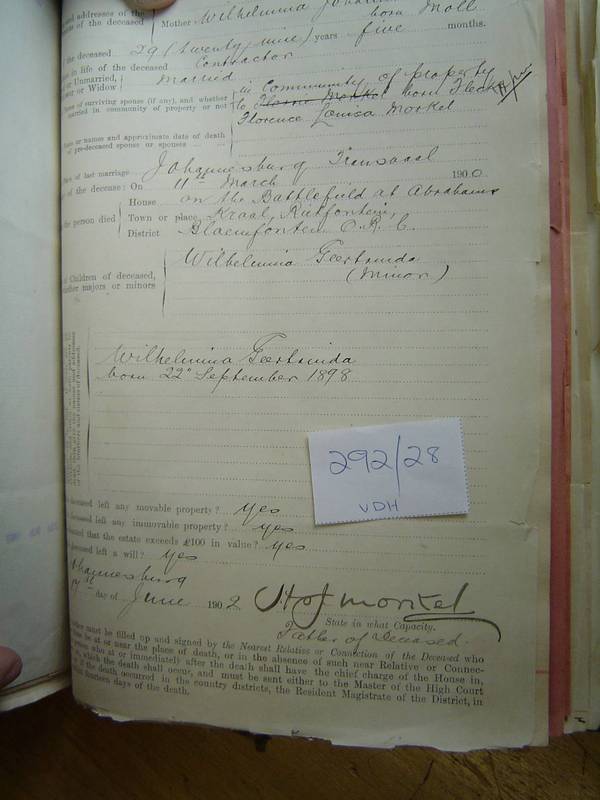 and addresses of the
of the deceased
Mother Wilhelmina
born Moll
the deceased 29 (twenty nine) years five months.
in life of the deceased Contractor
or Unmarried,
or Widow Married
of surviving spouse (if any), and whether
married in community of property or not
in Community of property
to born
Florence Louisa Morkel
or names and approximate date of death
of pre-deceased spouse or spouses
of last marriage Johannesburg Transvaal
of the decease: On 11th March 1900
House on the Battlefield at Abrahams
the person died Town or place Kraal, Rietfontein,
District Bloemfontein O.R.C.
of Children of deceased,
whether majors or minors
Wilhelmina Geertruida
(Minor)
Wilhelmina Geertruida
born 22" September 1898
292/28
VDH
deceased left any movable property? Yes
deceased left any immovable property? Yes
that the estate exceeds £100 in value? Yes
deceased left a will? Yes
Johannesburg
17th day of June 1902 Morkel
State in what Capacity.
Father of Deceased.
must be filled up and signed by the Nearest Relative or Connection of the Deceased who
be at or near the place of death, or in the absence of such near Relative or Connec-
person who at or immediately after the death shall have the chief charge of the House in,
which the death shall occur, and must be sent either to the Master of the High Court
if the death occurred in the country districts, the Resident Magistrate of the District, in
fourteen days of the death.